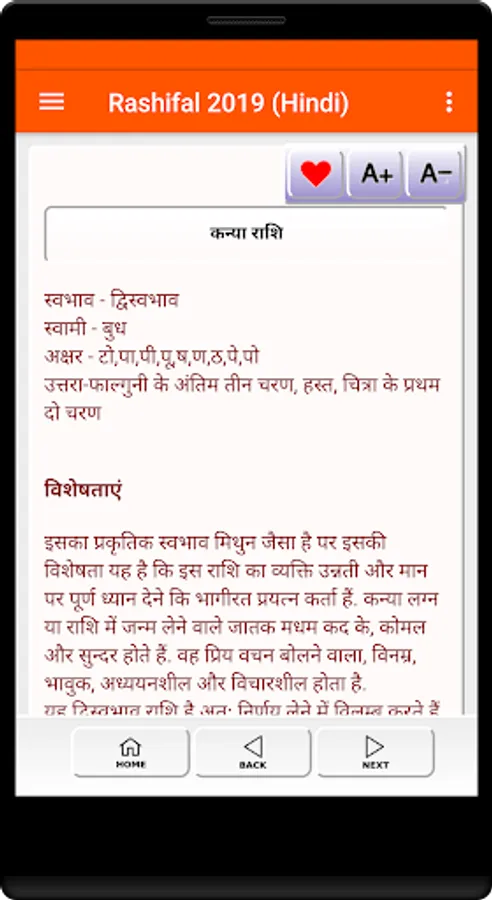 Rashifal 2019 (Hindi)
A+ A-
कन्या राशि
स्वभाव - द्विस्वभाव
स्वामी - बुध
अक्षर - टो,पा,पी,पू,ष,ण,ठ,पे,पो
उत्तरा-फाल्गुनी के अंतिम तीन चरण, हस्त, चित्रा के प्रथम
दो चरण
विशेषताएं
इसका प्रकृतिक स्वभाव मिथुन जैसा है पर इसकी
विशेषता यह है कि इस राशि का व्यक्ति उन्नती और मान
पर पूर्ण ध्यान देने कि भागीरत प्रयत्न कर्ता हैं. कन्या लग्न
या राशि में जन्म लेने वाले जातक मधम कद के, कोमल
और सुन्दर होते हैं. वह प्रिय वचन बोलने वाला, विनम्र,
भावुक, अध्ययनशील और विचारशील होता है.
यह द्विस्वभाव राशि है अतः निर्णय लेने में विलम्ब करते हैं
HOME BACK NEXT